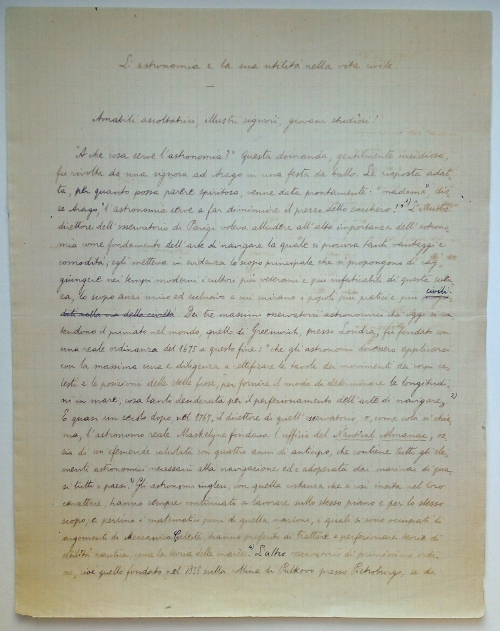 L'astronomia e la sua utilità nella vita civile
Amabili ascoltatrici, illustri signori, giovani studiosi!
"A che cosa serve l'astronomia?" Questa domanda, gentilmente insidiosa,
fu rivolta da una signora ad Arago in una festa da ballo. La risposta adat
ta, per quanto possa parere spiritosa, venne data prontamente: "madama", dis
se Arago, "l'astronomia serve a far diminuire il prezzo dello zucchero!" 1) L'illustre
direttore dell'osservatorio di Parigi voleva alludere all'alta importanza dell'astrono
mia come fondamento dell'arte di navigare la quale ci procura tanti vantaggi e
comodità; egli metteva in evidenza lo scopo principale che si propongono di rag
giungere nei tempi moderni i cultori più veterani e più infaticabili di questa
za, lo scopo anzi unico ed esclusivo a cui mirano i popoli più pratici e più civili
Dei tre massimi osservatori astronomici che oggi si con
tendono il primato nel mondo, quello di Greenwich, presso Londra, fu fondato con
una reale ordinanza del 1675 a questo fine: "che gli astronomi dovessero applicarsi
con la massima cura e diligenza a rettificare le tavole dei movimenti dei corpi ce
lesti e le posizioni delle stelle fisse, per fornire il modo di determinare le longitudi
ni in mare, cosa tanto desiderata per il perfezionamento dell'arte di navigare" 2)
E quasi un secolo dopo nel 1767, il direttore di quell'osservatorio, o, come colà si chia
ma, l'astronomo reale Maskelyne fondava l'ufficio del Nautical Almanac, os
sia di un'efemeride calcolata con quattro anni di anticipo, che contiene tutti gli ele
menti astronomici necessari alla navigazione ed è adoperata dai marinai di qua
si tutti i paesi. 3) Gli astronomi inglesi, con quella costanza che è insita nel loro
carattere, hanno sempre continuato a lavorare sullo stesso piano e per lo stesso
scopo, e persino i matematici puri di quella nazione, i quali si sono occupati di
argomenti di Meccanica Celeste hanno preferito di trattare e perfezionare teorie di
utilità nautica, come la teoria delle maree. 4) L'altro osservatorio di primissimo ordi
ne, cioè quello fondato nel 1839 sulla di Pulkovo presso Pietroburgo, se da